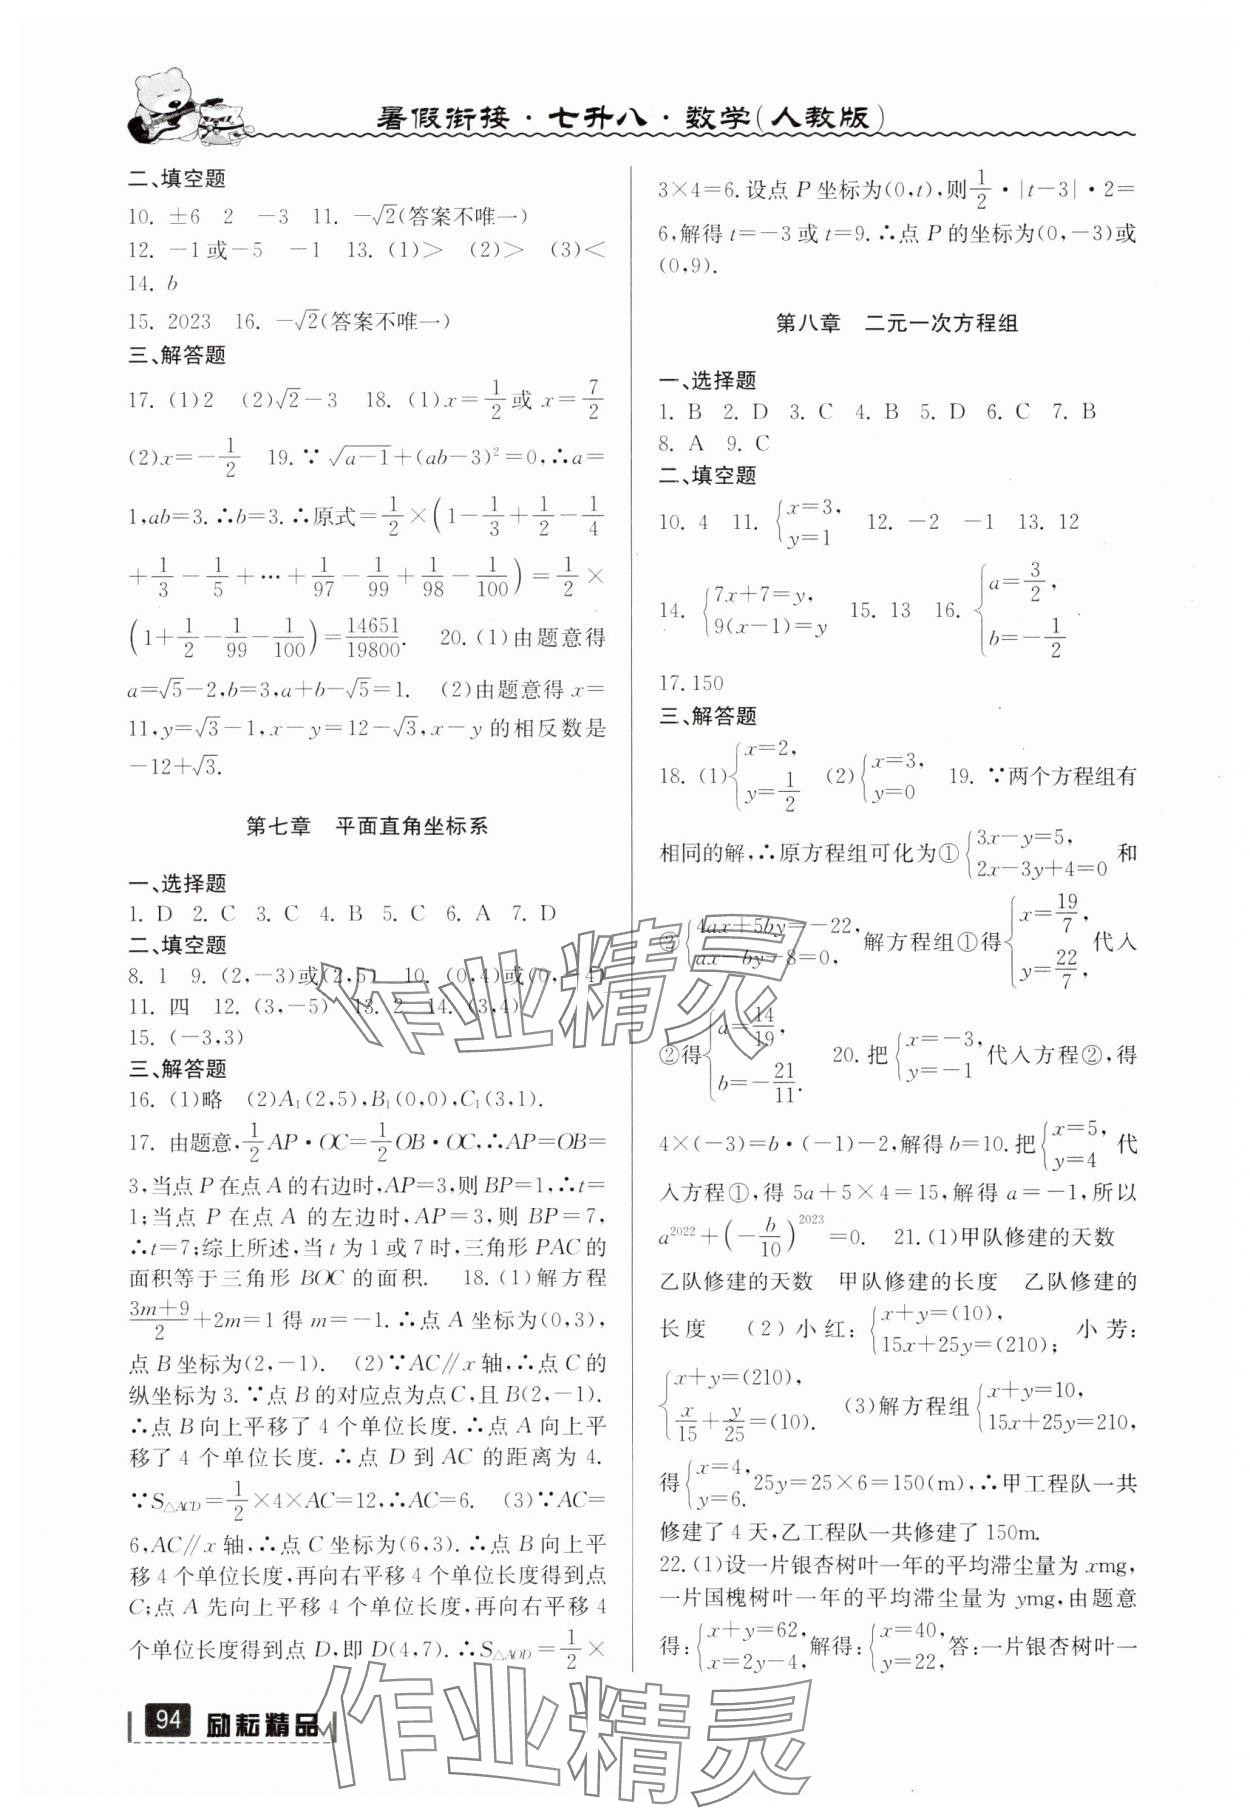 暑假衔接·七升八·数学(人教版)
二、填空题
10. ±6 2 −3 11. −√2(答案不唯一)
12. −1或−5 −1 13. (1)> (2)> (3)<
14. b
15. 2023 16. −√2(答案不唯一)
三、解答题
17. (1)2 (2)√2−3 18. (1)x=1/2或 x=7/2
(2)x=−1/2 19. ∵√(a−1)+(ab−3)²=0,∴a=
1,ab=3.∴b=3.∴原式=1/2×(1−1/3+1/2−1/4
+1/3−1/5+…+1/97−1/99+1/98−1/100)=1/2×
(1+1/2−1/99−1/100)=14651/19800. 20. (1)由题意得
a=√5−2,b=3,a+b−√5=1. (2)由题意得 x=
11,y=√3−1,x−y=12−√3,x−y 的相反数是
−12+√3.
第七章 平面直角坐标系
一、选择题
1. D 2. C 3. C 4. B 5. C 6. A 7. D
二、填空题
8. 1 9. (2,−3)或(2,5) 10. (0,4)或(0,−4)
11. 四 12. (3,−5) 13. 2 14. (3,4)
15. (−3,3)
三、解答题
16. (1)略 (2)A₁(2,5),B₁(0,0),C₁(3,1).
17. 由题意,1/2AP·OC=1/2OB·OC,∴AP=OB=
3,当点 P 在点 A 的右边时,AP=3,则 BP=1,∴t=
1;当点 P 在点 A 的左边时,AP=3,则 BP=7,
∴t=7;综上所述,当 t 为 1 或 7 时,三角形 PAC 的
面积等于三角形 BOC 的面积. 18. (1)解方程
(3m+9)/2+2m=1 得 m=−1.∴点 A 坐标为(0,3),
点 B 坐标为(2,−1). (2)∵AC∥x 轴,∴点 C 的
纵坐标为 3.∵点 B 的对应点为点 C,且 B(2,−1).
∴点 B 向上平移了 4 个单位长度.∴点 A 向上平
移了 4 个单位长度.∴点 D 到 AC 的距离为 4.
∵S△ACD=1/2×4×AC=12,∴AC=6. (3)∵AC=
6,AC∥x 轴,∴点 C 坐标为(6,3).∴点 B 向上平
移 4 个单位长度,再向右平移 4 个单位长度得到点
C;点 A 先向上平移 4 个单位长度,再向右平移 4
个单位长度得到点 D,即 D(4,7).∴S△AOD=1/2×
94 励耘精品
3×4=6.设点 P 坐标为(0,t),则1/2·|t−3|·2=
6,解得 t=−3 或 t=9.∴点 P 的坐标为(0,−3)或
(0,9).
第八章 二元一次方程组
一、选择题
1. B 2. D 3. C 4. B 5. D 6. C 7. B
8. A 9. C
二、填空题
10. 4 11. {x=3, y=1 12. −2 −1 13. 12
14. {7x+7=y, 9(x−1)=y 15. 13 16. {a=3/2, b=−1/2
17.150
三、解答题
18. (1){x=2, y=1/2 (2){x=3, y=0 19. ∵两个方程组有
相同的解,∴原方程组可化为①{3x−y=5, 2x−3y+4=0 和
②{4ax+5by=−22, ax−by−8=0, 解方程组①得{x=19/7, y=22/7, 代入
②得{a=14/19, b=−21/11. 20. 把{x=−3, y=−1 代入方程②,得
4×(−3)=b·(−1)−2,解得 b=10.把{x=5, y=4 代
入方程①,得 5a+5×4=15,解得 a=−1,所以
a²⁰²²+(−b/10)²⁰²³=0. 21. (1)甲队修建的天数
乙队修建的天数 甲队修建的长度 乙队修建的
长度 (2)小红:{x+y=(10), 15x+25y=(210); 小芳:
{x+y=(210), x/15+y/25=(10). (3)解方程组{x+y=10, 15x+25y=210,
得{x=4, y=6. 25y=25×6=150(m),∴甲工程队一共
修建了 4 天,乙工程队一共修建了 150m.
22. (1)设一片银杏树叶一年的平均滞尘量为 xmg,
一片国槐树叶一年的平均滞尘量为 ymg,由题意
得:{x+y=62, x=2y−4, 解得:{x=40, y=22, 答:一片银杏树叶一
作业精灵
作业精灵